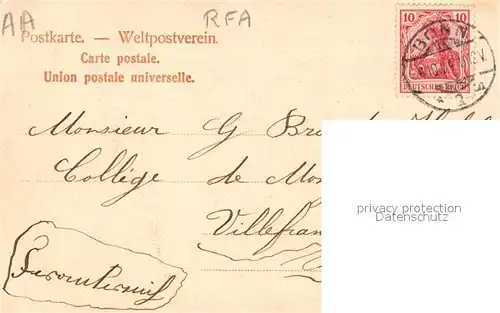 AA RFA
Postkarte. — Weltpostverein.
Carte postale.
Union postale universelle.
10 10
DEUTSCHES REICH
BONN
Monsieur G
Collège de
Villefran
privacy protection
Datenschutz